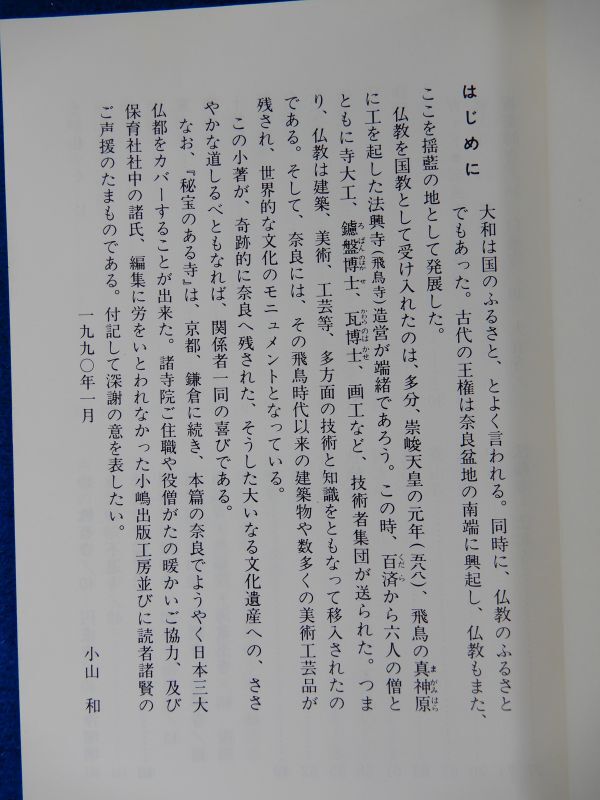 はじめに
大和は国のふるさと、とよく言われる。同時に、仏教のふるさと
でもあった。古代の王権は奈良盆地の南端に興起し、仏教もまた、
ここを揺藍の地として発展した。
仏教を国教として受け入れたのは、多分、崇峻天皇の元年(五八八)、飛鳥の真神原
に工を起した法興寺(飛鳥寺)造営が端緒であろう。この時、百済から六人の僧と
ともに寺大工、鑪盤博士、瓦博士、画工など、技術者集団が送られた。つま
り、仏教は建築、美術、工芸等、多方面の技術と知識をともなって移入されたの
である。そして、奈良には、その飛鳥時代以来の建築物や数多くの美術工芸品が
残され、世界的な文化のモニュメントとなっている。
この小著が、奇跡的に奈良へ残された、そうした大いなる文化遺産への、ささ
やかな道しるべともなれば、関係者一同の喜びである。
なお、『秘宝のある寺』は、京都、鎌倉に続き、本篇の奈良でようやく日本三大
仏都をカバーすることが出来た。諸寺院ご住職や役僧がたの暖かいご協力、及び
保育社社中の諸氏、編集に労をいとわれなかった小嶋出版工房並びに読者諸賢の
ご声援のたまものである。付記して深謝の意を表したい。
一九九〇年一月
小山 和